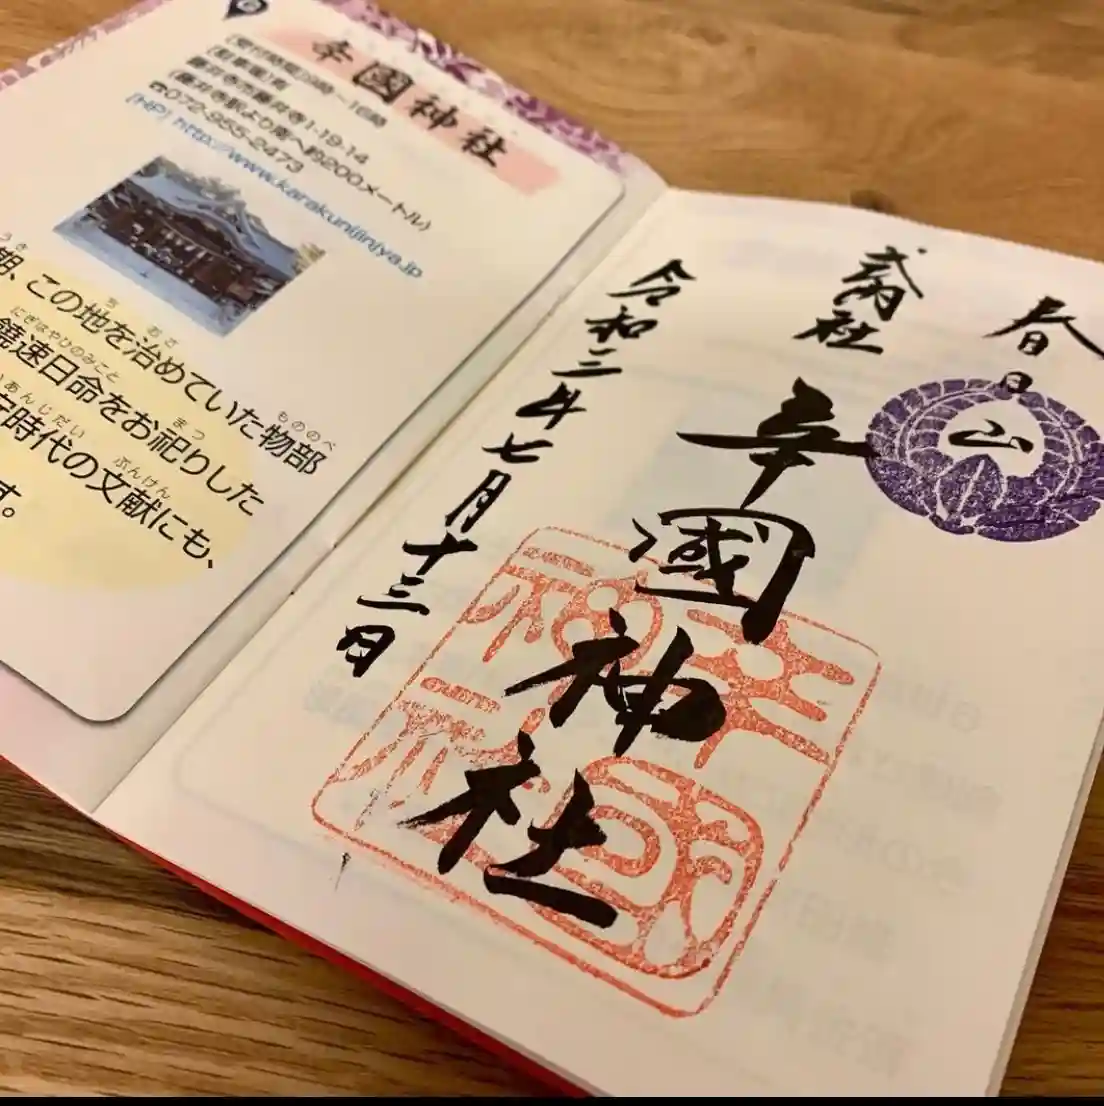 辛國神社
[受付時間]9時～16時
[駐車場]有
藤井寺市藤井寺1-19-14
(藤井寺駅より南へ約200メートル)
☎072-955-2473
[HP] http://www.karakunijinjya.jp
朝、この地を治めていた物部
饒速日命をお祀りした
安時代の文献にも、
す。
春日
山
式内社
辛國神社
令和三年七月十三日